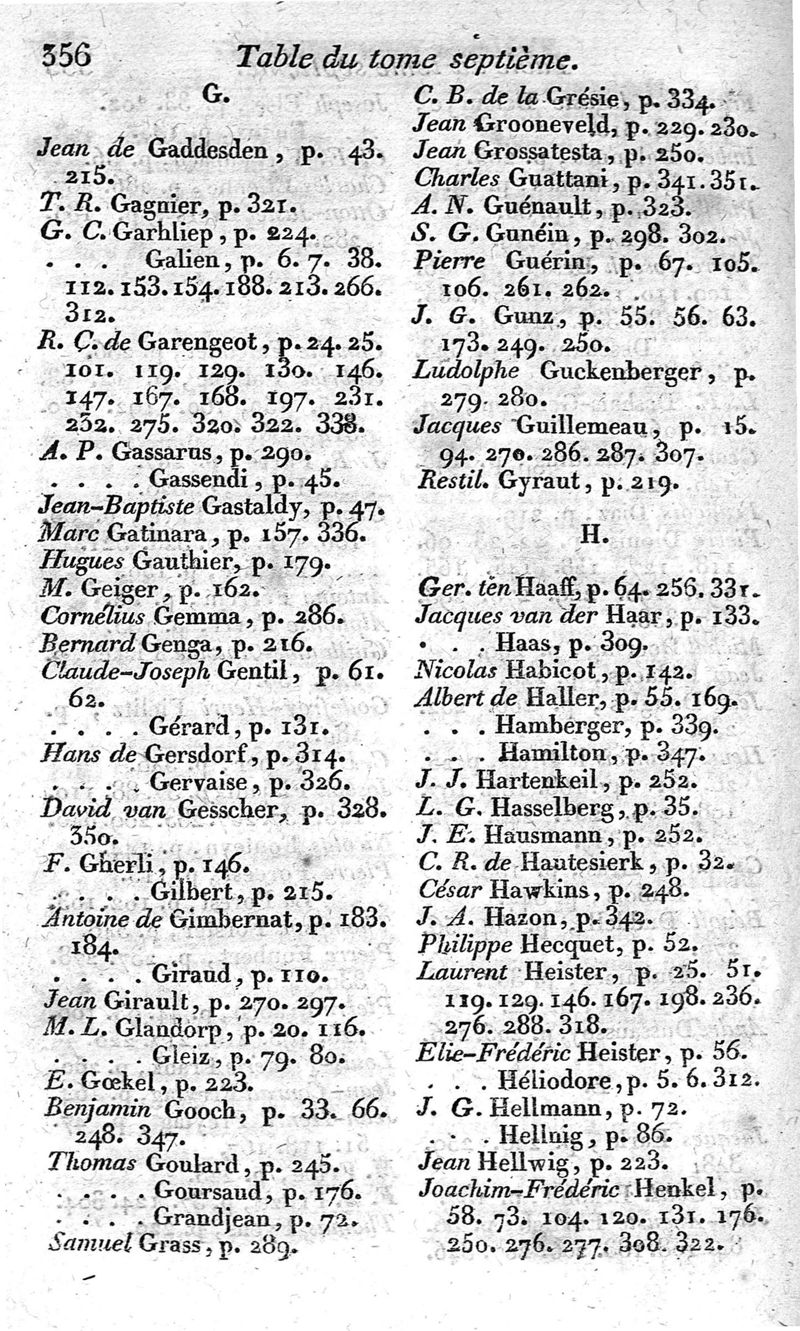 356
Table du tome septième.
G.
Jean de Gaddesden, p. 43.
215.
T. R. Gagnier, p. 321.
G. C. Garhliep, p. 224.
. . . Galien, p. 6. 7. 38.
112. 153. 154. 188. 213. 266.
312.
R. Ç. de Garengeot, p. 24. 25.
101. 119. 129. 130. 146.
147. 167. 168. 197. 231.
232. 275. 320. 322. 338.
A. P. Gassarus, p. 290.
. . . . Gassendi, p. 45.
Jean-Baptiste Gastaldy, p. 47.
Marc Gatinara, p. 157. 336.
Hugues Gauthier, p. 179.
M. Geiger, p. 162.
Cornélius Gemma, p. 286.
Bernard Genga, p. 216.
Claude-Joseph Gentil, p. 61.
62.
. . . . Gérard, p. 131.
Hans de Gersdorf, p. 314.
. . . . Gervaise, p. 326.
David van Gesscher, p. 328.
350.
F. Gherli, p. 146.
. . . . Gilbert, p. 215.
Antoine de Gimbernat, p. 183.
184.
. . . . Giraud, p. 110.
Jean Girault, p. 270. 297.
M. L. Glandorp, p. 20. 116.
. . . . Gleiz, p. 79. 80.
E. Gœkel, p. 223.
Benjamin Gooch, p. 33. 66.
248. 347.
Thomas Goulard, p. 245.
. . . . Goursaud, p. 176.
. . . . Grandjean, p. 72.
Samuel Grass, p. 289.
C. B. de la Grésie, p. 334.
Jean Grooneveld, p. 229. 230.
Jean Grossatesta, p. 250.
Charles Guattani, p. 341. 351.
A. N. Guénault, p. 323.
S. G. Gunéin, p. 298. 302.
Pierre Guérin, p. 67. 105.
106. 261. 262.
J. G. Gunz, p. 55. 56. 63.
173. 249. 250.
Ludolphe Guckenberger, p.
279. 280.
Jacques Guillemeau, p. 15.
94. 270. 286. 287. 307.
Restil. Gyraut, p. 219.
H.
Ger. tèn Haaff, p. 64. 256. 331.
Jacques van der Haar, p. 133.
. . . Haas, p. 309.
Nicolas Habicot, p. 142.
Albert de Haller, p. 55. 169.
. . . Hamberger, p. 339.
. . . Hamilton, p. 347.
J. J. Hartenkeil, p. 252.
L. G. Hasselberg, p. 35.
J. E. Hausmann, p. 252.
C. R. de Hautesierk, p. 32.
César Hawkins, p. 248.
J. A. Hazon, p. 342.
Philippe Hecquet, p. 52.
Laurent Heister, p. 25. 51.
119. 129. 146. 167. 198. 236.
276. 288. 318.
Elie-Frédéric Heister, p. 56.
. . . Héliodore, p. 5. 6. 312.
J. G. Hellmann, p. 72.
. . . Hellnig, p. 86.
Jean Hellwig, p. 223.
Joachim-Frédéric Henkel, p.
58. 73. 104. 120. 131. 176.
250. 276. 277. 308. 322.